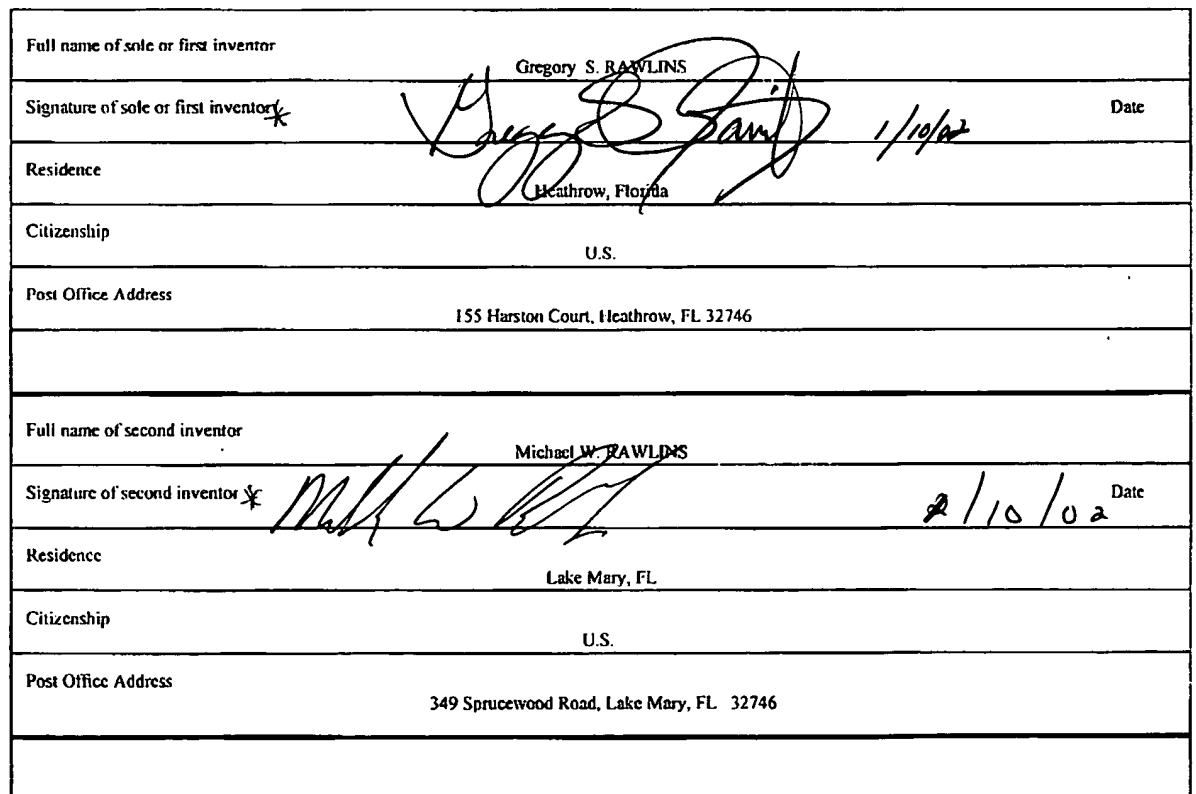 Full name of sole or first inventor
Gregory S. RAWLINS
Signature of sole or first inventor* 1/10/02 Date
Residence
Heathrow, Florida
Citizenship
U.S.
Post Office Address
155 Harston Court, Heathrow, FL 32746
Full name of second inventor
Michael W. RAWLINS
Signature of second inventor * /10/02 Date
Residence
Lake Mary, FL
Citizenship
U.S.
Post Office Address
349 Sprucewood Road, Lake Mary, FL 32746